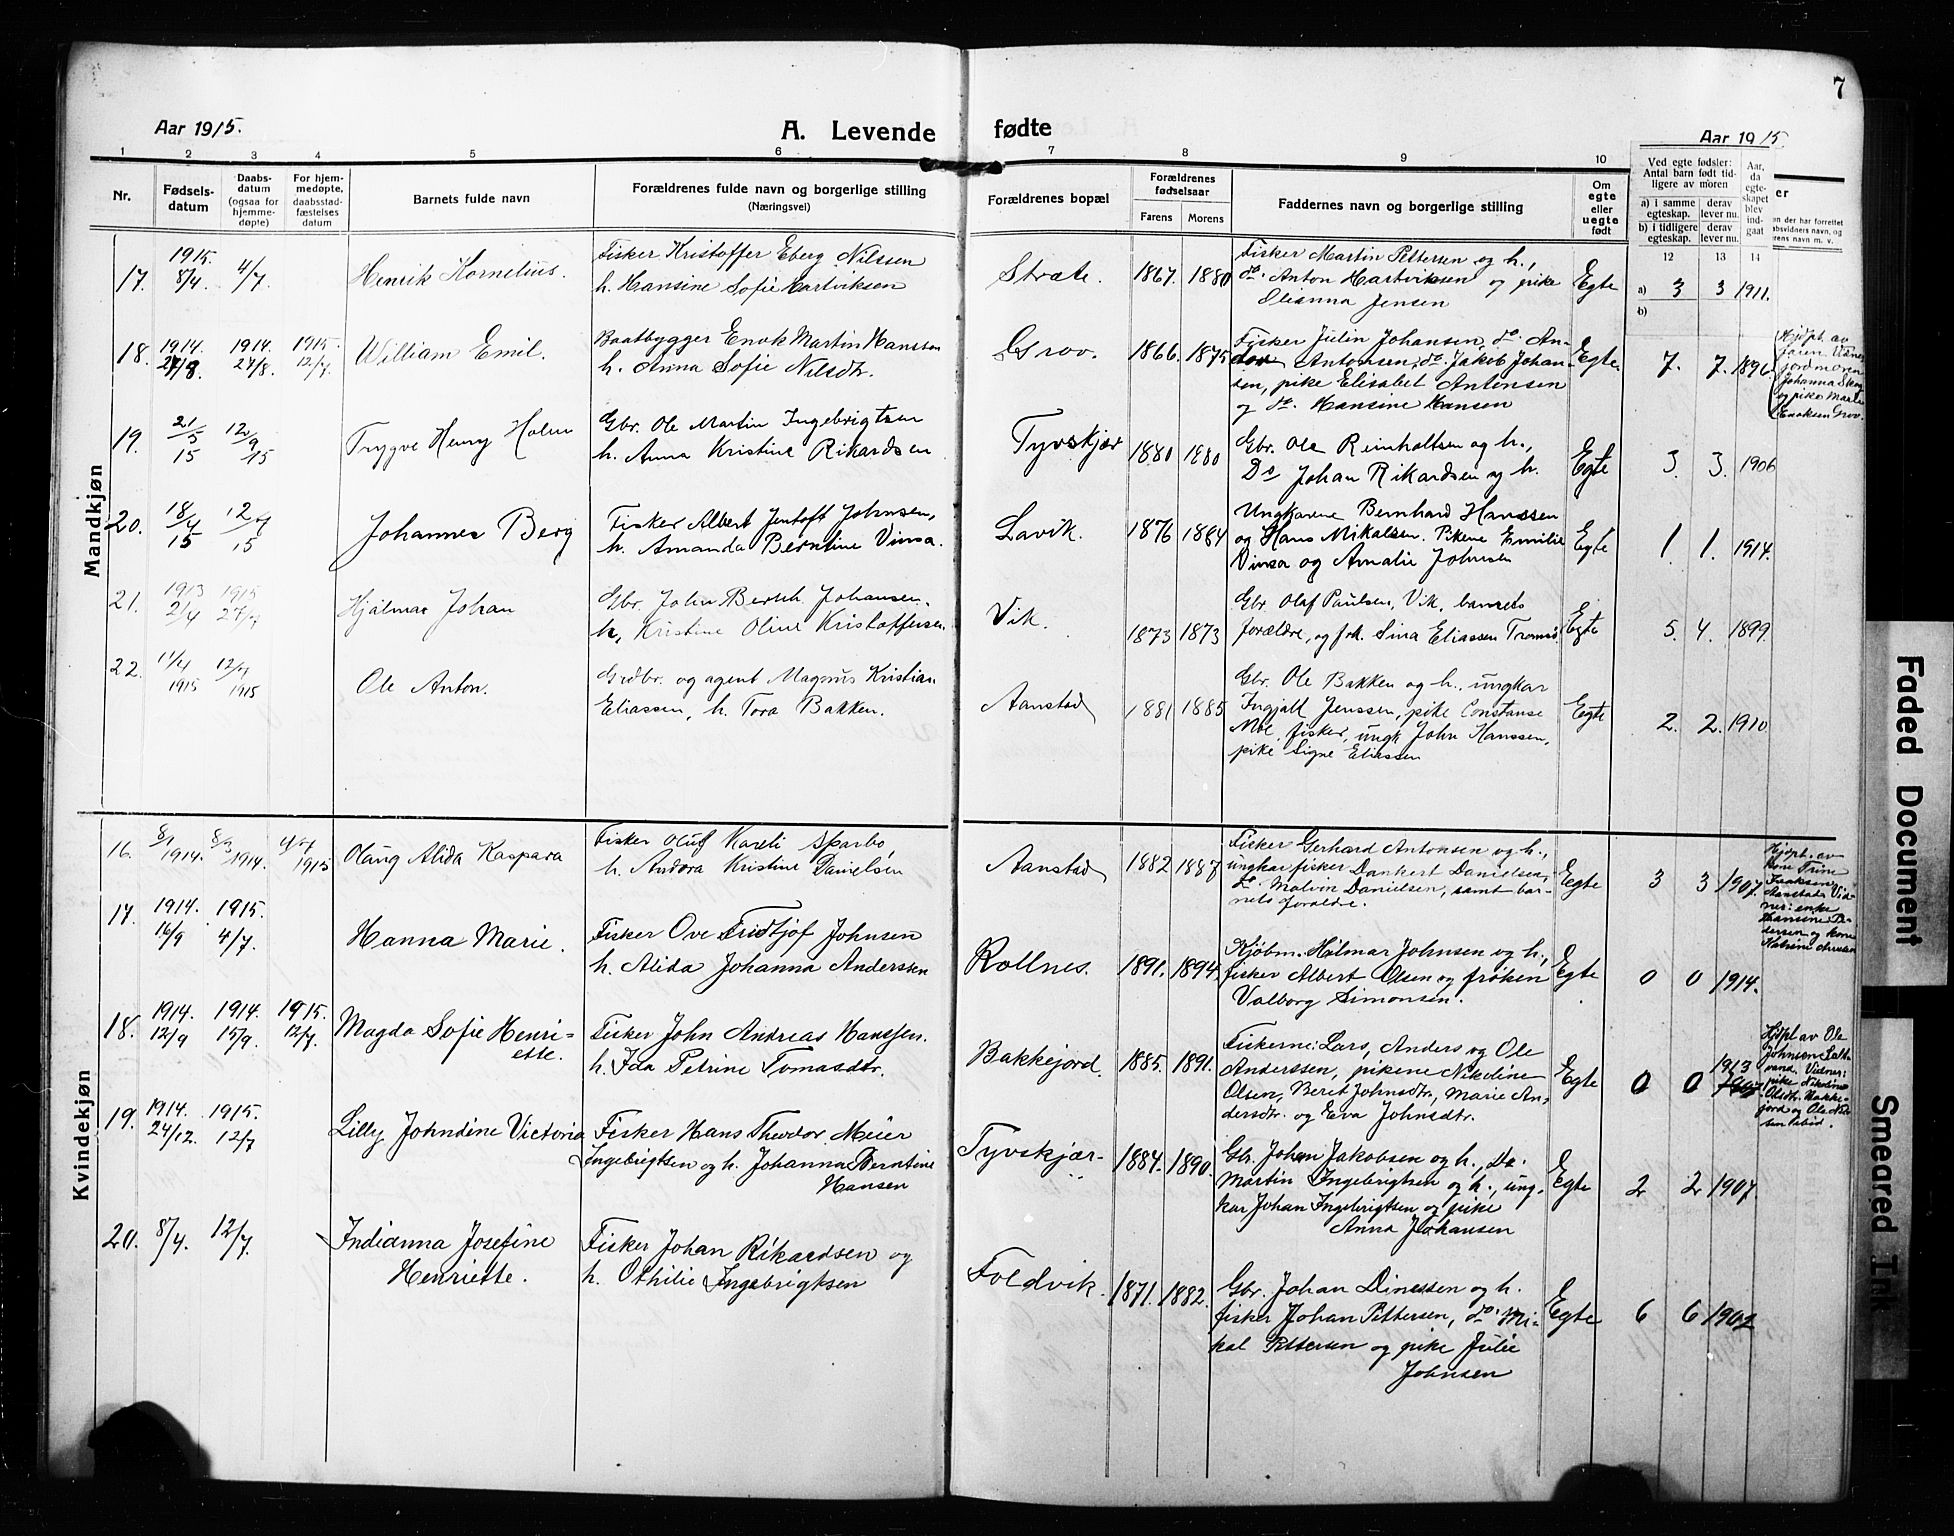 7
Aar 1915.
A. Levende fødte
Aar 1915
1 2 3 4 5 6 7 8 9 10
Nr.
Fødsels-
datum
Daabs-
datum
(ogsaa for
hjemme-
døpte)
For hjem-
medøpte,
daabsstad-
fæstelses
datum
Barnets fulde navn
Forældrenes fulde navn og borgerlige stilling
(Næringsvei)
Forældrenes bopæl
Forældrenes
fødselsaar
Farens Morens
Faddernes navn og borgerlige stilling
Om
egte
eller
uegte
født
Ved egte fødsler:
Antal barn født tid-
ligere av moren
a) i samme
egteskap.
derav
lever nu.
b) i tidligere
egteskap.
derav
lever nu.
Aar,
da
egte-
skapet
blev
ind-
gaat
12 13 14
Mandkjøn
17. 1915. 8/4 4/7
Henrik Kornelius.
Fisker Kristoffer Eberg Nilssen
h. Hansine Sofie Hartviksen
Strate. 1867. 1880
Fisker Martin Pettersen og h.,
do. Anton Hartviksen og pike
Oleanna Jensen
Egte a) 3 3 1911.
b)
18. 1914. 27/8 1914. 27/8. 1915. 12/7.
William Emil.
Baatbygger Enok Martin Hanssen
h. Anna Sofie Nilsdtr.
Grov. 1866. 1875
Fisker Julin Johansen, do. An-
Antonsen, do. Jakob Johan-
sen, pike Elisabet Antonsen
og do. Hansine Hansen
Egte 7. 7. 1896.
Hjdpt. av
faren. Vidner
jordmoren
Johanna Skog
og pike Marie
Enoksen Grov.
19. 21/5 15 12/9 15
Trygve Henry Holm
Gbr. Ole Martin Ingebrigtsen
h. Anna Kristine Rikardsen
Tyvskjær 1880 1880
Gbr. Ole Reinholtsen og h.,
Do Johan Rikardsen og h.
Egte 3. 3. 1906
20. 18/4 15 12/9 15
Johannes Berg
Fisker Albert Jentoft Johnsen,
h. Amanda Berntine Vinsa.
Lavik. 1876 1884
Ungkarene Bernhard Hanssen
og Hans Mikalsen. Pikene Emilie
Vinsa og Amalie Johnsen
Egte 1 1. 1914.
21. 1913 2/4 1915 27/9
Hjalmar Johan
Gbr. John Berteh. Johansen.
h. Kristine Oline Kristoffersen.
Vik. 1873 1873
Gbr. Olaf Paulsen, Vik, barnets
forældre, og frk. Sina Eliassen Tromsø.
Egte 5. 4. 1899.
22. 11/4 1915 12/9 1915
Ole Anton.
Grdbr. og agent Magnus Kristian
Eliassen, h. Tora Bakken.
Aanstad 1881 1885
Gbr. Ole Bakken og h., ungkar
Ingjalt Jenssen, pike Constanse
Moe, fisker, ungk John Hanssen,
pike Signe Eliassen
Egte 2. 2. 1910
Kvindekjøn
16. 8/1 1914. 8/3 1914. 4/7 1915
Olaug Alida Kaspara
Fisker Oluf Kareli Sparbo,
h. Andora Kristine Danielsen
Aanstad 1882 1887
Fisker Gerhard Antonsen og h.,
ungkar fisker Dankert Danielsen,
do. Malvin Danielsen, samt bar-
nets foreldre.
Egte 3 3 1907.
Hjdpt. av
kone Trine
Isaksen
Aanstad. Vid-
ner: enke
Hansine Pe-
dersen og kone
17. 1914. 16/9 1915. 4/7.
Hanna Marie.
Fisker Ove Fridtjof Johnsen
h. Alida Johanna Anderssen
Rollnes. 1891. 1894.
Kjøbm. Hilmar Johnsen og h.,
fisker Albert Olsen og frøken
Valborg Simonsen.
Egte 0 0 1914.
18. 1914. 12/9 1914. 15/9. 1915. 12/7.
Magda Sofie Henri-
ette.
Fisker John Andreas Hanssen.
h. Ida Petrine Tomasdtr.
Bakkejord. 1885. 1891.
Fiskerne: Lars, Anders og Ole
Anderssen, pikene Nikoline
Olsen, Beret Johnsdtr., Marie An-
dersdtr. og Eva Johnsdtr.
Egte 0 0 1913
Hjdpt av Ole
Johnsen Salt-
vand. Vidner:
pike Nikoline
Olsdtr. Bakke-
jord og Ole Niel-
19. 1914. 24/12. 1915. 12/7
Lilly Johndine Victoria
Fisker Hans Theodor Meier
Ingebrigtsen og h. Johanna Berntine
Hansen
Tyvskjær 1884. 1890.
Gbr. Johan Jakobsen og h., Do.
Martin Ingebrigtsen og h., ung-
kar Johan Ingebrigtsen og pike
Anna Johansen
Egte 2 2 1907.
20. 8/4. 12/7.
Indianna Josefine
Henriette.
Fisker Johan Rikardsen og
h. Othilie Ingebrigtsen
Foldvik. 1871. 1882.
Gbr. Johan Dinessen og h.
fisker Johan Pettersen, do. Mi-
kal Pettersen og pike Julie
Johnsen
Egte 6 6 1902
Faded Document
Smeared Ink